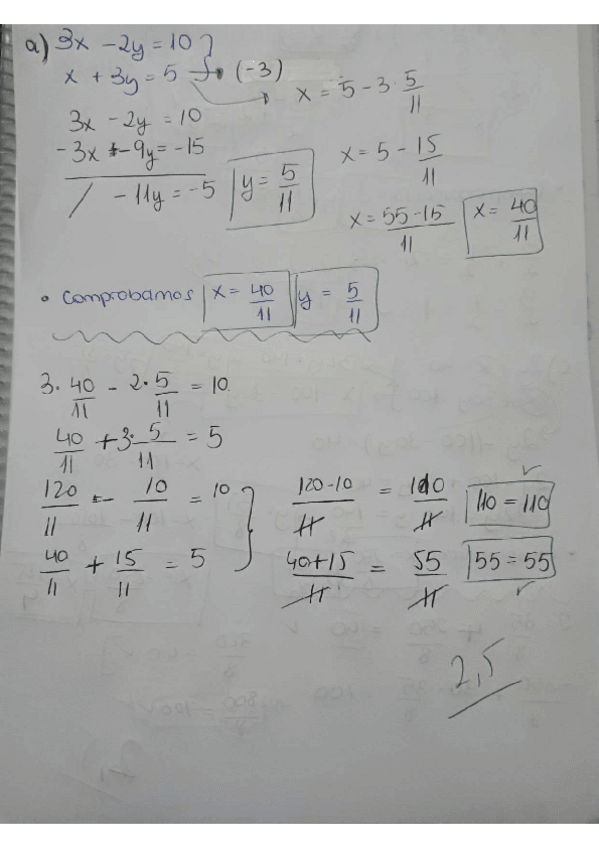 a) 3x - 2y = 10
x + 3y = 5 → (-3)
x = 5 - 3 · 5/11
3x - 2y = 10
-3x - 9y = -15
/ -11y = -5
y = 5/11
x = 5 - 15/11
x = 55-15/11
x = 40/11
• Comprobamos x = 40/11 y = 5/11
3 · 40/11 - 2 · 5/11 = 10
40/11 + 3 · 5/11 = 5
120/11 - 10/11 = 10
40/11 + 15/11 = 5
120-10/11 = 110/11 110 = 110 ✓
40+15/11 = 55/11 55 = 55 ✓
2,5